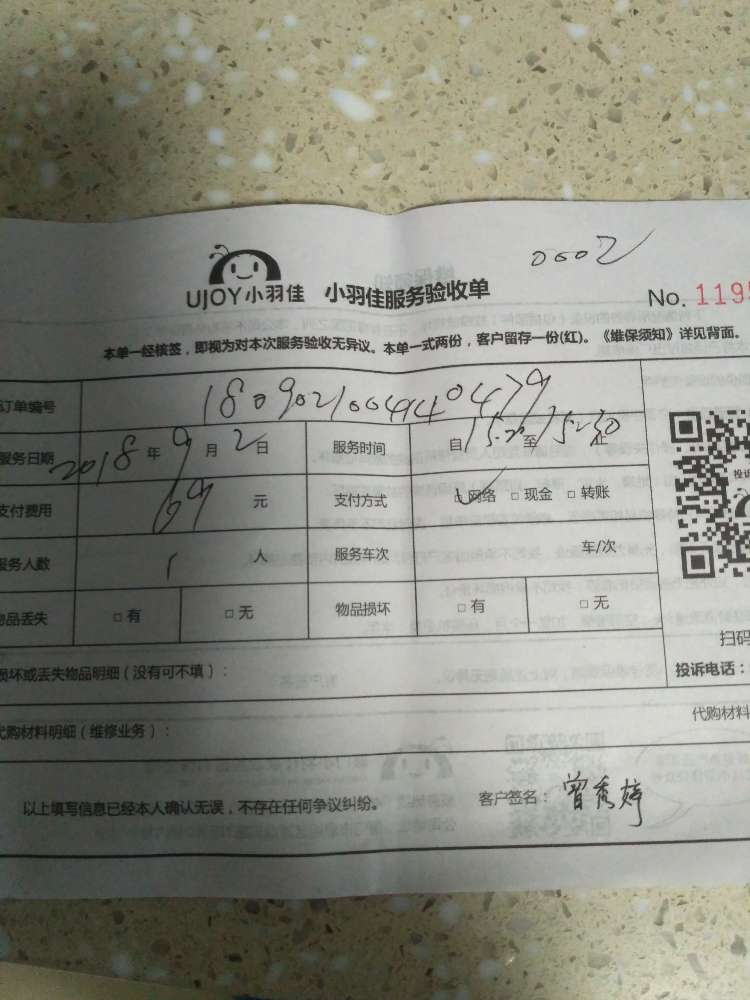 0002
UJOY小羽佳 小羽佳服务验收单
No. 119
本单一经核签，即视为对本次服务验收无异议。本单一式两份，客户留存一份(红)。《维保须知》详见背面。
订单编号
服务日期 2018年9月2日 服务时间 自 至 止
支付费用 69元 支付方式 ☑网络 □现金 □转账
服务人数 1人 服务车次 车/次
物品丢失 □有 □无 物品损坏 □有 □无
投诉
扫码
投诉电话：
损坏或丢失物品明细（没有可不填）：
代购材料明细（维修业务）： 代购材料
以上填写信息已经本人确认无误，不存在任何争议纠纷。 客户签名：曾秀婷